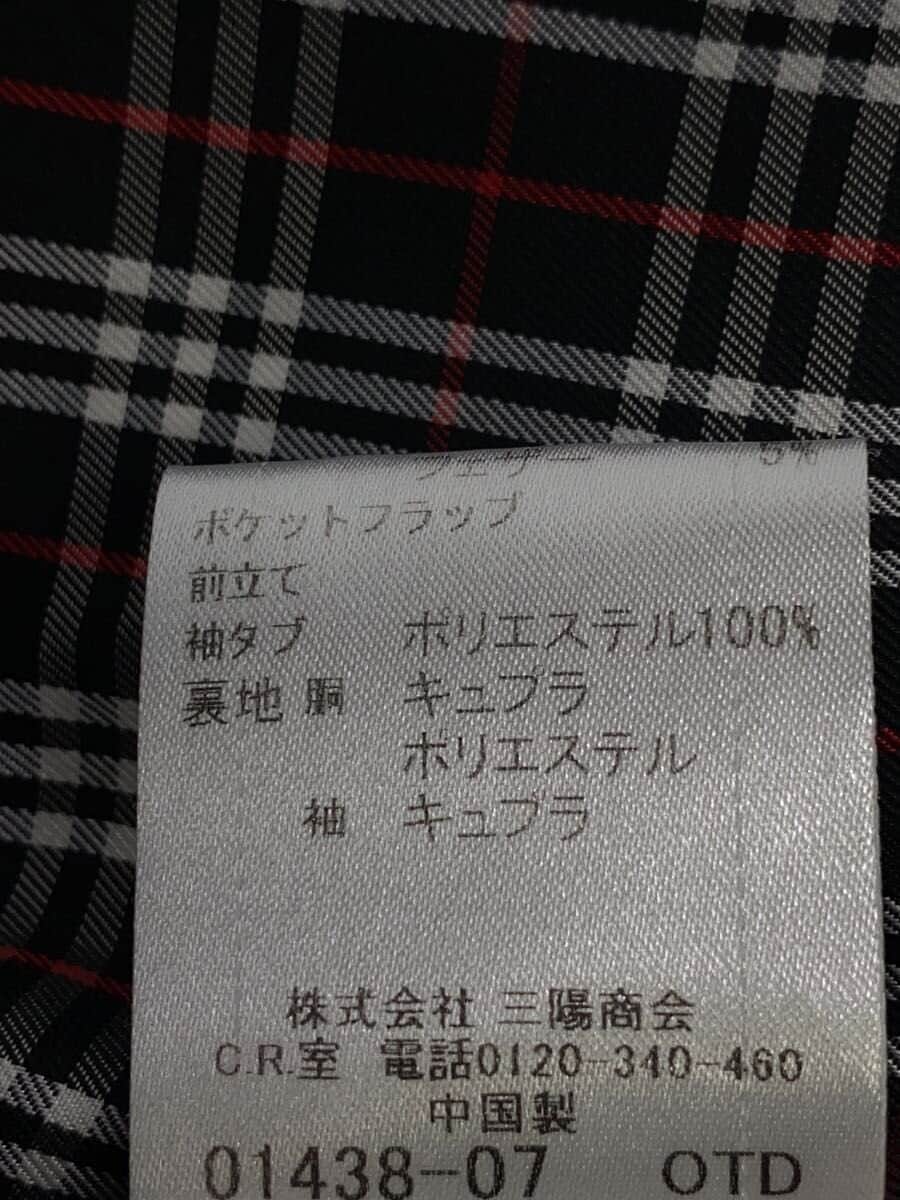 フェザー 5%
ポケットフラップ
前立て
袖タブ ポリエステル100%
裏地 胴 キュプラ
ポリエステル
袖 キュプラ
株式会社 三陽商会
C.R.室 電話0120-340-460
中国製
01438-07 OTD